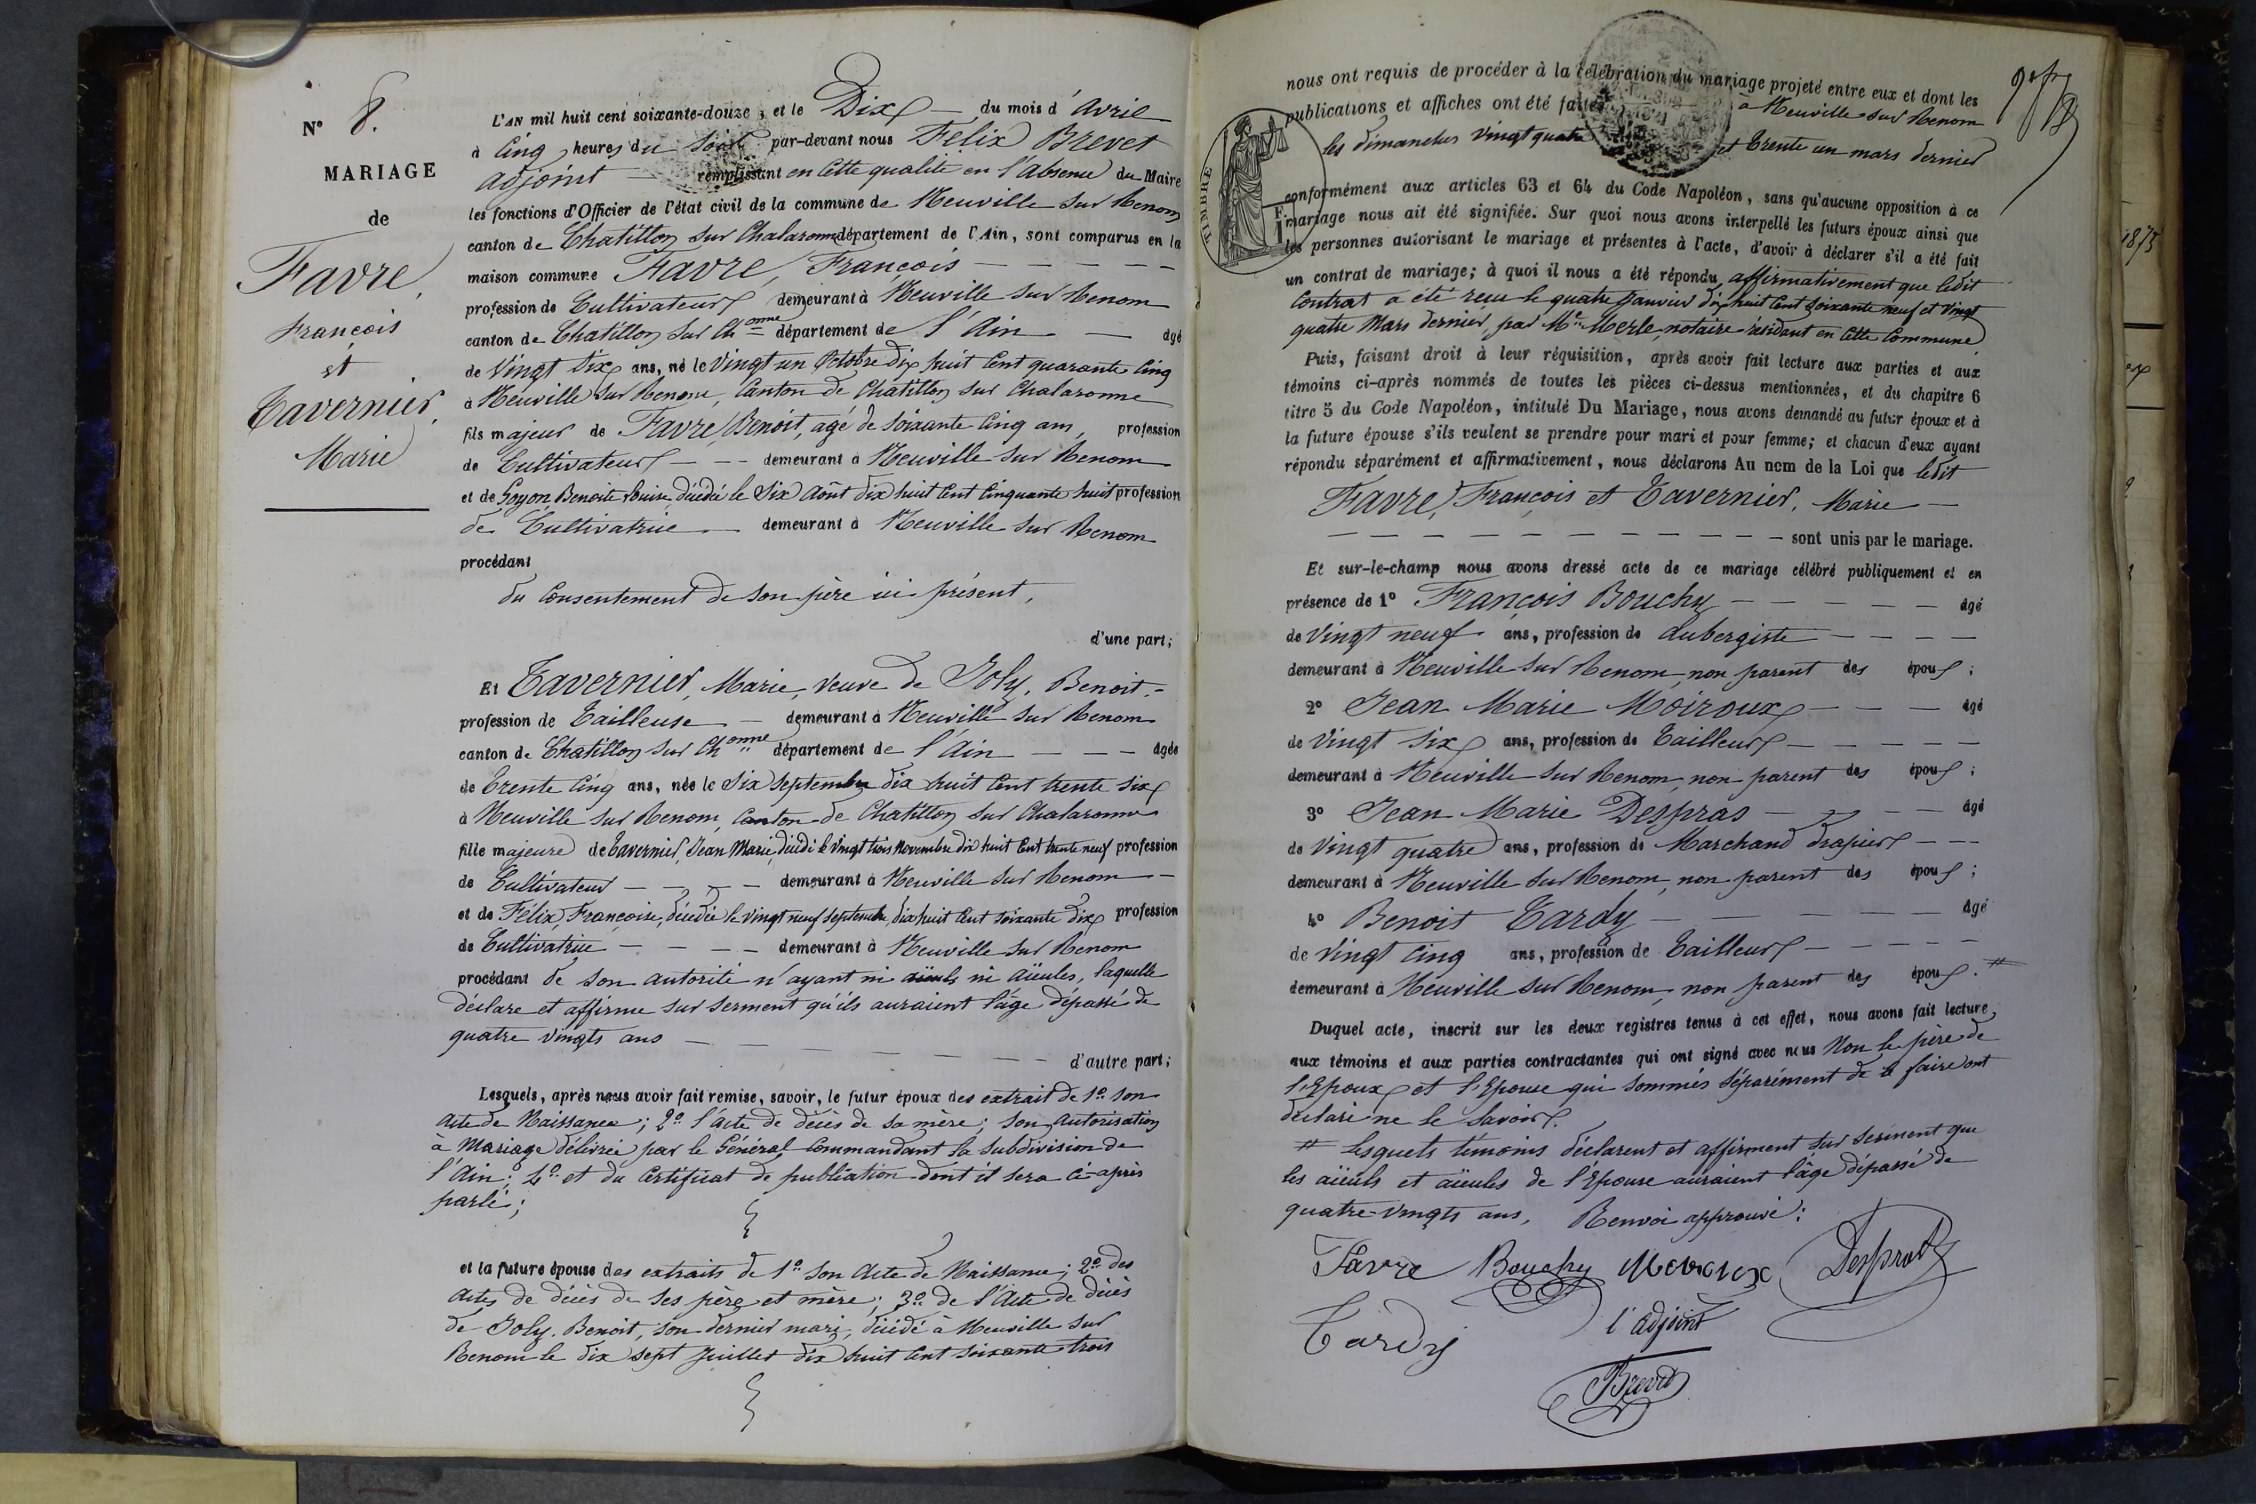 N° 8.
MARIAGE
de
Favre,
François
et
Tavernier,
Marie
L'AN mil huit cent soixante-douze, et le Dix du mois d'Avril
à Cinq heures du Soir par-devant nous Félix Brevet
adjoint remplissant en cette qualité en l'absence du Maire
les fonctions d'Officier de l'état civil de la commune de Neuville sur Renom
canton de Chatillon sur Chalaronne département de l'Ain, sont comparus en la
maison commune Favre, François
profession de Cultivateur demeurant à Neuville sur Renom
canton de Chatillon sur Chonne département de l'Ain âgé
de Vingt Six ans, né le Vingt un Octobre dix huit cent quarante cinq
à Neuville sur Renom, canton de Chatillon sur Chalaronne
fils majeur de Favre, Benoit, agé de soixante cinq ans, profession
de Cultivateur demeurant à Neuville sur Renom
et de Goyon Benoite Louise, décédée le Six Août dix huit cent cinquante huit profession
de Cultivatrice demeurant à Neuville sur Renom
procédant
du Consentement de son père ici présent,
d'une part;
Et Tavernier, Marie, Veuve de Joly, Benoit,
profession de Tailleuse demeurant à Neuville sur Renom
canton de Chatillon sur Chonne département de l'Ain âgée
de Trente Cinq ans, née le Six Septembre dix huit cent trente six
à Neuville sur Renom, Canton de Chatillon sur Chalaronne
fille majeure de Tavernier, Jean Marie, décédé le Vingt trois Novembre dix huit cent trente neuf profession
de Cultivateur demeurant à Neuville sur Renom
et de Félix, Françoise, décédée le Vingt neuf Septembre dix huit cent soixante dix profession
de Cultivatrice demeurant à Neuville sur Renom
procédant de son autorité n'ayant ni aïeuls ni aïeules, laquelle
déclare et affirme sur serment qu'ils auraient l'âge dépassé de
quatre Vingts ans
d'autre part;
Lesquels, après nous avoir fait remise, savoir, le futur époux des extrait de 1° son
acte de Naissance; 2° l'acte de décès de sa mère; son autorisation
à Mariage délivrée par le Général Commandant la subdivision de
l'Ain; 4° et du Certificat de publication dont il sera ci-après
parlé;
et la future épouse des extraits de 1° son Acte de Naissance; 2° des
actes de décès de ses père et mère; 3° de l'Acte de décès
de Joly. Benoit, son dernier mari, décédé à Neuville sur
Renom le dix sept Juillet dix huit cent soixante trois
nous ont requis de procéder à la célébration du mariage projeté entre eux et dont les
publications et affiches ont été faites à Neuville sur Renom
les dimanches vingt quatre et trente un mars dernier
TIMBRE
conformément aux articles 63 et 64 du Code Napoléon, sans qu'aucune opposition à ce
mariage nous ait été signifiée. Sur quoi nous avons interpellé les futurs époux ainsi que
les personnes autorisant le mariage et présentes à l'acte, d'avoir à déclarer s'il a été fait
un contrat de mariage; à quoi il nous a été répondu affirmativement que ledit
Contrat a été reçu le quatre Janvier dix huit cent soixante neuf et Vingt
quatre Mars dernier, par Me Merle, notaire résidant en cette Commune
Puis, faisant droit à leur réquisition, après avoir fait lecture aux parties et aux
témoins ci-après nommés de toutes les pièces ci-dessus mentionnées, et du chapitre 6
titre 5 du Code Napoléon, intitulé Du Mariage, nous avons demandé au futur époux et à
la future épouse s'ils veulent se prendre pour mari et pour femme; et chacun d'eux ayant
répondu séparément et affirmativement, nous déclarons Au nom de la Loi que ledit
Favre, François et Tavernier, Marie
sont unis par le mariage.
Et sur-le-champ nous avons dressé acte de ce mariage célébré publiquement et en
présence de 1° François Bouchy âgé
de Vingt neuf ans, profession de Aubergiste
demeurant à Neuville sur Renom, non parent des époux;
2° Jean Marie Moiroux âgé
de Vingt six ans, profession de Tailleur
demeurant à Neuville sur Renom, non parent des époux;
3° Jean Marie Despras âgé
de Vingt quatre ans, profession de Marchand drapier
demeurant à Neuville sur Renom, non parent des époux;
4° Benoit Tardy âgé
de Vingt Cinq ans, profession de Tailleur
demeurant à Neuville sur Renom, non parent des époux. #
Duquel acte, inscrit sur les deux registres tenus à cet effet, nous avons fait lecture
aux témoins et aux parties contractantes qui ont signé avec nous Non le père de
l'Epoux et l'Epouse qui sommés séparément de le faire ont
déclaré ne le savoir.
# lesquels témoins déclarent et affirment sur serment que
les aïeuls et aïeules de l'Epouse auraient l'âge dépassé de
quatre-Vingts ans, Renvoi approuvé:
Favre Bouchy Moiroux Desprat
Tardy l'adjoint
Brevet
1873